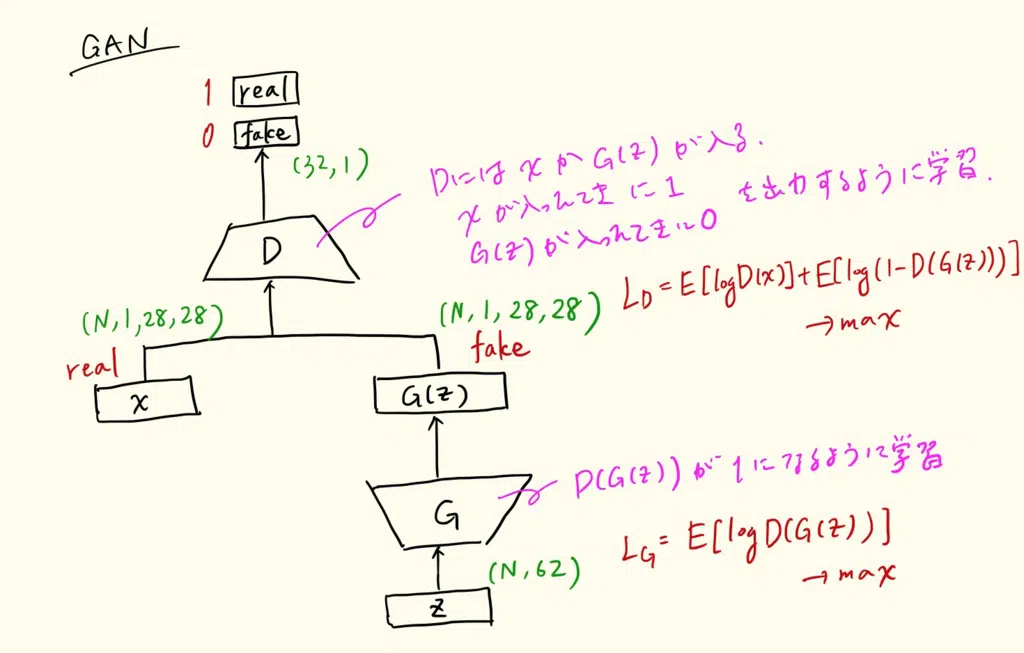 GAN
1 real
0 fake
(32,1)
Dには x か G(z) が入る.
x が入ってきに 1
G(z) が入ってきに 0
を出力するように学習.
D
L_D = E[logD(x)]+E[log(1-D(G(z)))]
→ max
(N,1,28,28)
(N,1,28,28)
real
fake
x
G(z)
D(G(z)) が 1 になるように学習
G
L_G = E[logD(G(z))]
→ max
(N,62)
z